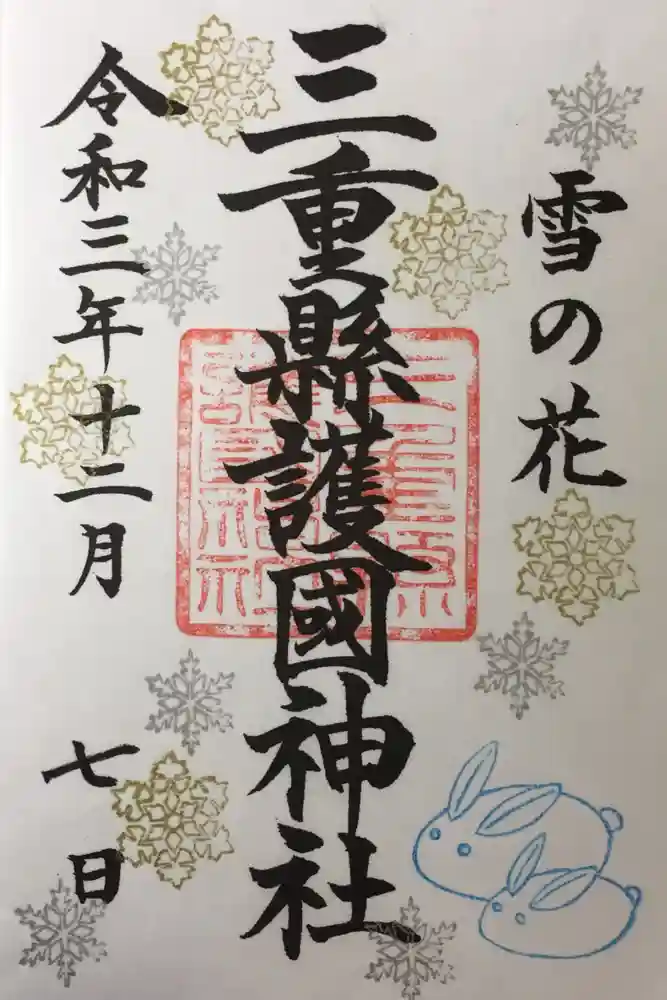 雪の花
三重縣護國神社
令和三年十二月
七日